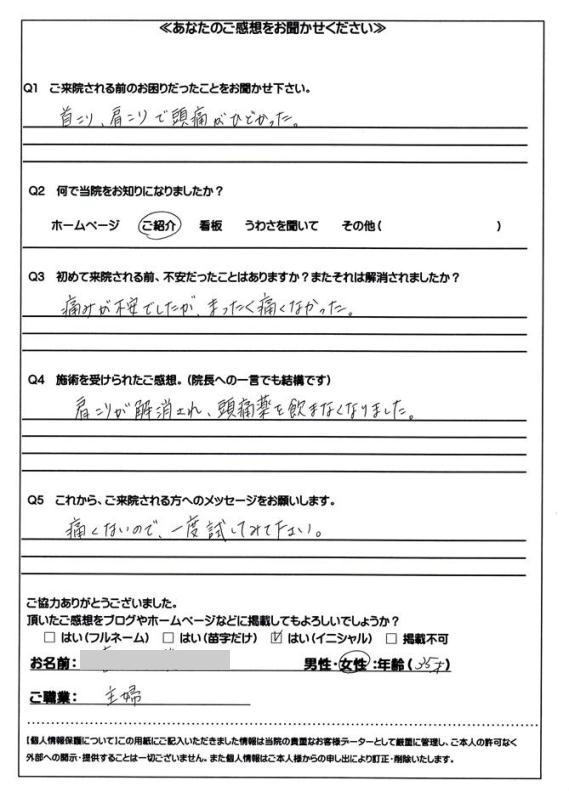 ≪あなたのご感想をお聞かせください≫
Q1 ご来院される前のお困りだったことをお聞かせ下さい。
首こり、肩こりで頭痛がひどかった。
Q2 何で当院をお知りになりましたか？
ホームページ ご紹介 看板 うわさを聞いて その他( )
Q3 初めて来院される前、不安だったことはありますか？またそれは解消されましたか？
痛みが不安でしたが、まったく痛くなかった。
Q4 施術を受けられたご感想。(院長への一言でも結構です)
肩こりが解消され、頭痛薬を飲まなくなりました。
Q5 これから、ご来院される方へのメッセージをお願いします。
痛くないので、一度試してみて下さい。
ご協力ありがとうございました。
頂いたご感想をブログやホームページなどに掲載してもよろしいでしょうか？
□ はい(フルネーム) □ はい(苗字だけ) ☑ はい(イニシャル) □ 掲載不可
お名前： 男性・女性：年齢(35才)
ご職業： 主婦
【個人情報保護について】この用紙にご記入いただきました情報は当院の貴重なお客様データーとして厳重に管理し、ご本人の許可なく
外部への開示・提供することは一切ございません。また個人情報はご本人様からの申し出により訂正・削除いたします。